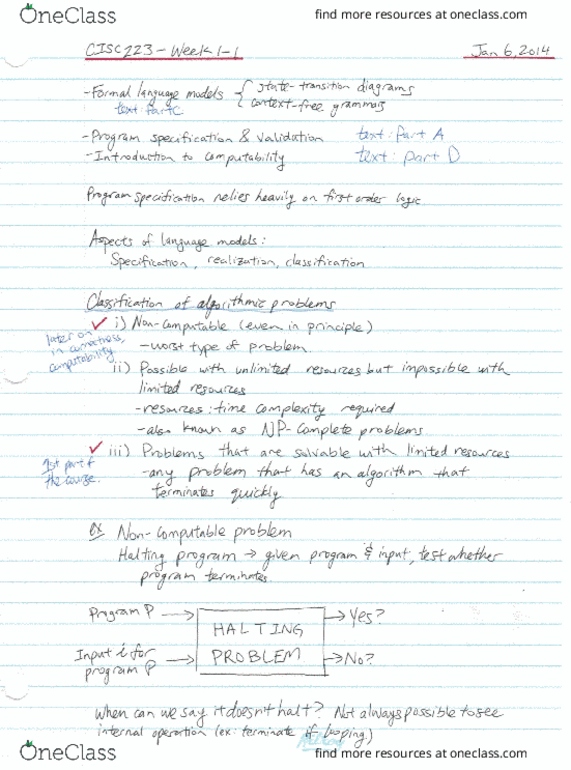 OneClass find more resources at oneclass.com
CISC223 - Week 1-1 Jan 6, 2014
- Formal language models { state-transition diagrams
text: Part C context-free grammars
- Program specification & validation text: Part A
- Introduction to computability text: part D
Program specification relies heavily on first order logic
Aspects of language models:
Specification, realization, classification
Classification of algorithmic problems
✓ i) Non-computable (even in principle)
later on
in correctness,
computability
- worst type of problem.
ii) Possible with unlimited resources but impossible with
limited resources
- resources: time complexity required
- also known as NP-Complete problems
✓ iii) Problems that are solvable with limited resources
1st part of
the course.
- any problem that has an algorithm that
terminates quickly
ex Non-Computable problem
Halting program → given program & input, test whether
program terminates
Program P → → Yes?
HALTING
Input i for → PROBLEM → No?
program P
When can we say it doesn't halt? Not always possible to see
internal operation (ex: terminate if looping.)
OneClass find more resources at oneclass.com